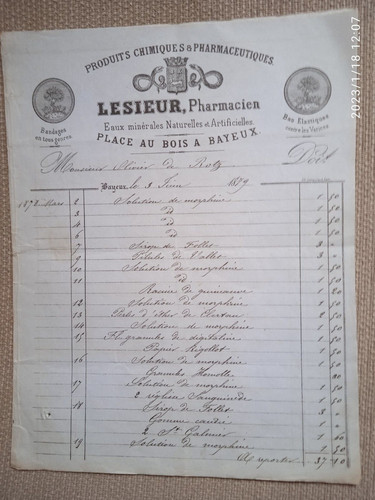 2023/1/18 12:07
PRODUITS CHIMIQUES & PHARMACEUTIQUES.
LESIEUR, Pharmacien
Eaux minérales Naturelles et Artificielles.
PLACE AU BOIS A BAYEUX.
Bandages
en tous genres
Bas Elastiques
contre les Varices
Monsieur Olivier de Doit
Bayeux, le 3 Juin 1879
1872 Mars 2 Solution de morphine 1 50
3 id 1 50
4 id 1 50
6 id 1 50
7 Sirop de Follet 3 "
9 Pilules de Vallet
10 Solution de morphine 1 50
11 id 1 50
Racine de guimauve
12 Solution de morphine 1 50
13 Perles d'éther de Clertan 2
14 Solution de morphine 1 50
15 Fl. granules de digitaline
Papier Rigollot 1 50
16 Solution de morphine 1 50
Granules
17 Solution de morphine 1 50
2
18 Sirop de Follet 3 "
Gomme
2 St Galmier
19 Solution de morphine 1 50
A reporter 37 10